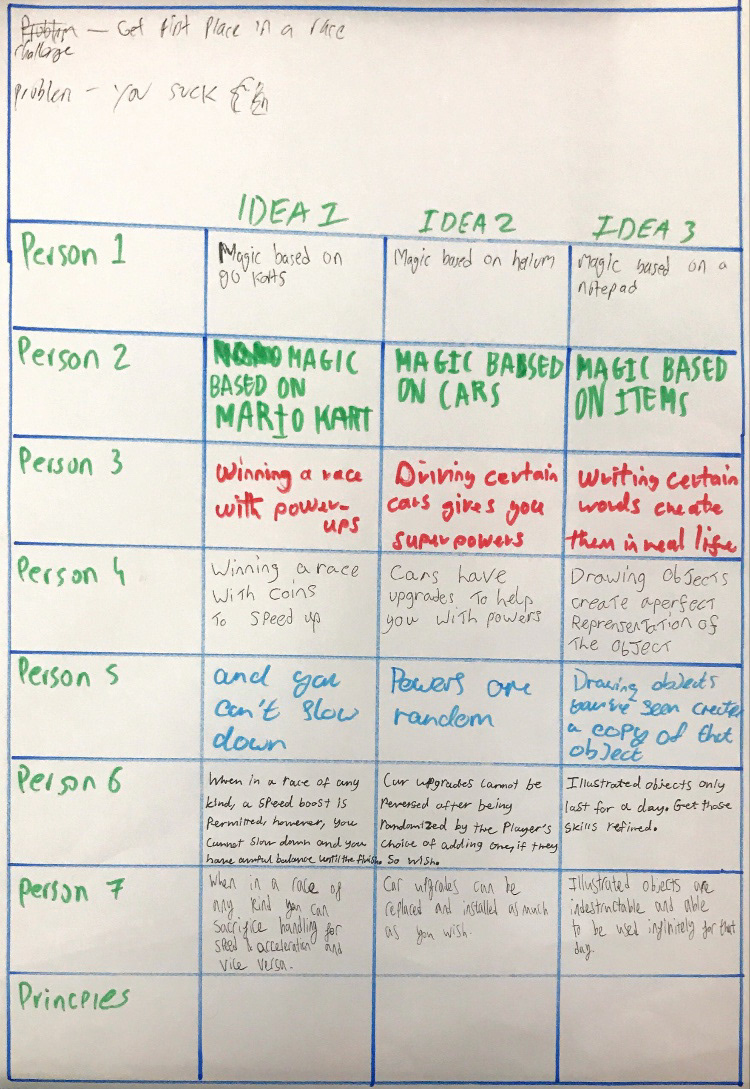 Problem — Get first place in a race
challenge
problem — you suck
IDEA 1
IDEA 2
IDEA 3
Person 1
Magic based on
go karts
Magic based on helium
Magic based on a
notepad
Person 2
MAGIC
BASED ON
MARIO KART
MAGIC BASSED
ON CARS
MAGIC BASED
ON ITEMS
Person 3
Winning a race
with power-
ups
Driving certain
cars gives you
superpowers
Writing certain
words create
them in real life
Person 4
Winning a race
With coins
To speed up
Cars have
upgrades To help
you with powers
Drawing objects
create a perfect
Reprensentation of
The object
Person 5
and you
can't slow
down
Powers are
random
Drawing objects
you've seen creates
a copy of that
object
Person 6
When in a race of any
kind, a speed boost is
Permitted, however, you
cannot slow down and you
have awful balance until the finish.
Car upgrades cannot be
reversed after being
randomized by the Player's
choice of adding one, if they
so wish.
Illustrated objects only
last for a day. Get those
skills refined.
Person 7
When in a race of
any kind you can
sacrifice handling for
speed & acceleration and
vice versa.
Car upgrades can be
replaced and installed as much
as you wish.
Illustrated objects are
indestructable and able
to be used infinitely for that
day.
Princples